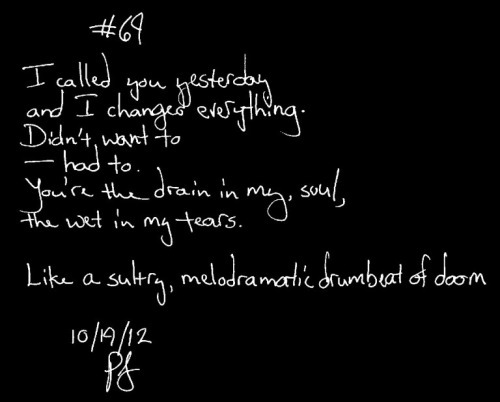 #69
I called you yesterday
and I changed everything.
Didn't want to
— had to.
You're the drain in my soul,
the wet in my tears.
Like a sultry, melodramatic drumbeat of doom
10/19/12